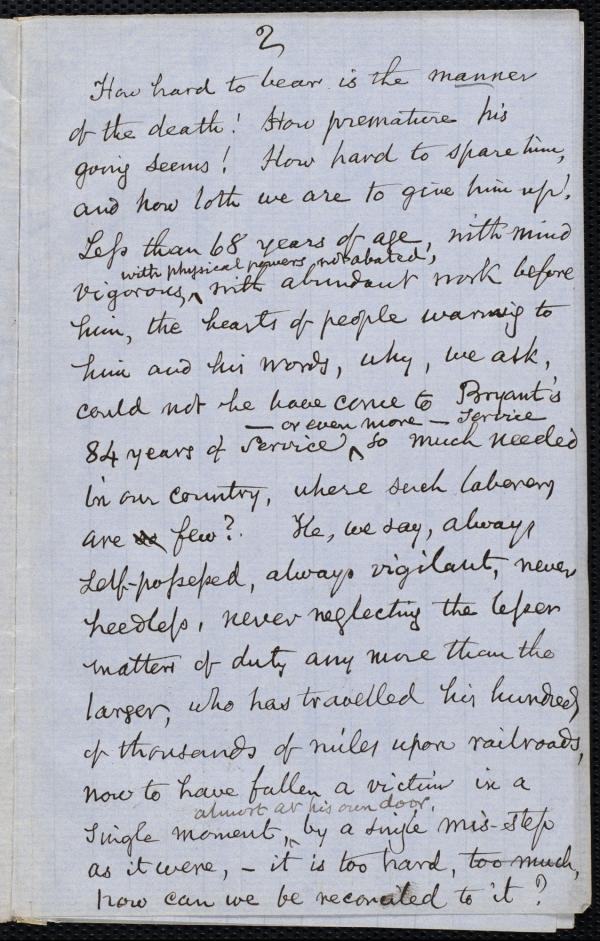 2
How hard to bear is the manner
of the death! How premature his
going seems! How hard to spare him,
and how loth we are to give him up!
Less than 68 years of age, with mind
with physical powers not abated,
vigorous, ‸ with abundant work before
him, the hearts of people warming to
him and his words, why, we ask,
could not he have come to Bryant's
— or even more — service
84 years of service ‸ so much needed
in our country, where such laborers
are so few? He, we say, always
self-possessed, always vigilant, never
heedless, never neglecting the lesser
matters of duty any more than the
larger, who has travelled his hundreds
of thousands of miles upon railroads,
now to have fallen a victim in a
almost at his own door,
single moment, ‸ by a single mis-step
as it were, – it is too hard, too much,
how can we be reconciled to it?